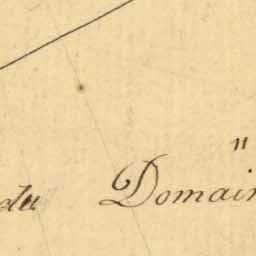 "
du Domain